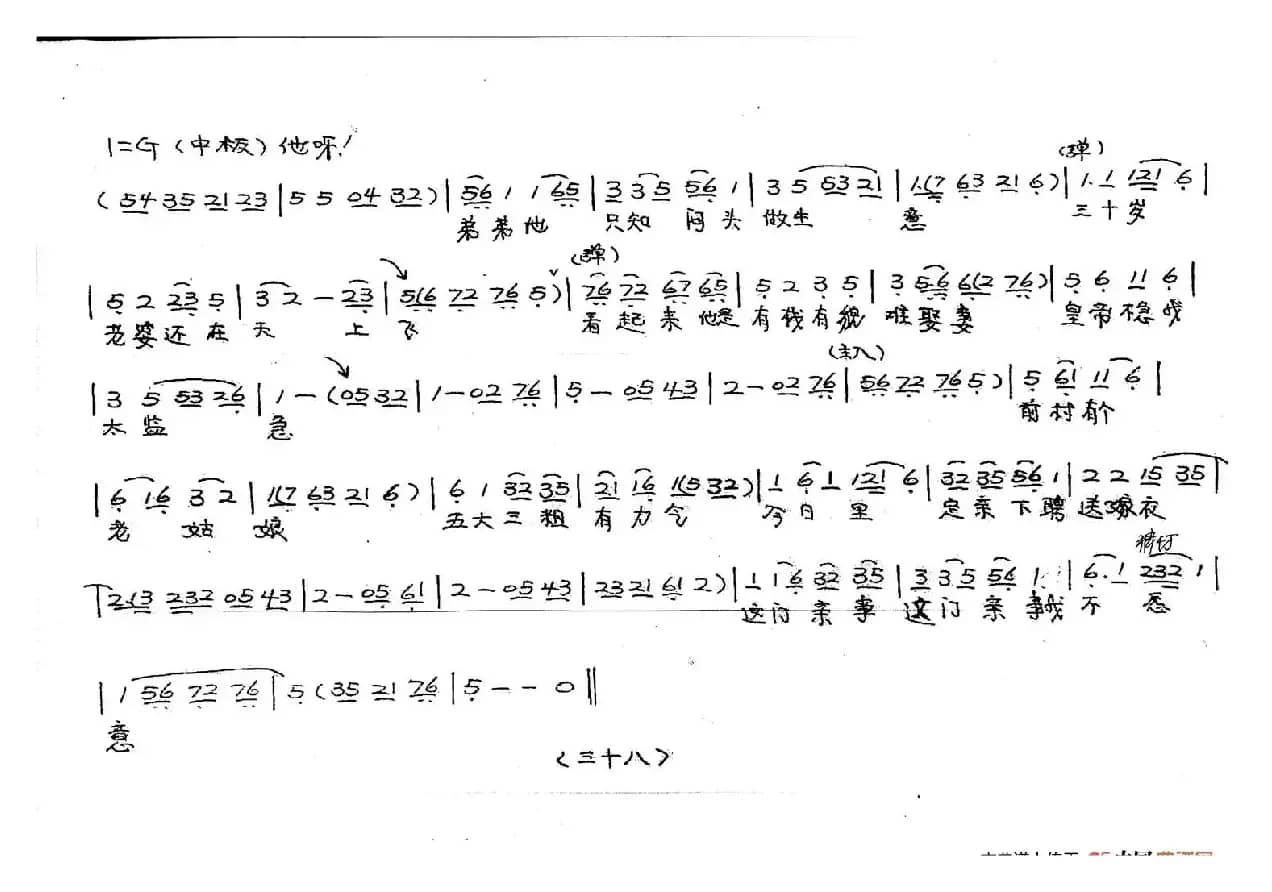 1=G (中板) 他呀!
(弹)
(54 35 21 23 | 5 5 04 32) | 56 1 1 65 | 3 35 56 1 | 3 5 53 21 | 1.(7 63 21 6) | 1.1 121 6 |
弟弟他 只知 闷头 做生 意 三十岁
(弹)
| 5 2 23 5 | 3 2 - 23 | 5(6 72 76 5) | 76 72 67 65 | 5 2 3 5 | 3 56 6(2 76) | 5 6 11 6 |
老婆还在 天 上 飞 看起来他是 有钱有貌 难娶妻 皇帝不急哎
(末八)
| 3 5 53 26 | 1 - (05 32 | 1 - 02 76 | 5 - 05 43 | 2 - 02 76 | 56 72 76 5) | 5 61 11 6 |
太监 急 前村有个
| 6 16 3 2 | 1(7 63 21 6) | 6 1 32 35 | 21 16 1(5 32) | 1 6 1 121 6 | 32 35 56 1 | 2 2 15 35 |
老 姑 娘 五大三粗 有力气 今日里 定亲下聘 送嫁衣
2.(3 232 05 43 | 2 - 05 61 | 2 - 05 43 | 23 21 61 2) | 1 1 6 32 35 | 3 35 56 1 | 6. 1 232 1 |
这门亲事 这门亲事我 不 愿
| 1 56 72 76 | 5 (35 21 76 | 5 - - 0 ‖
意
(三十八)